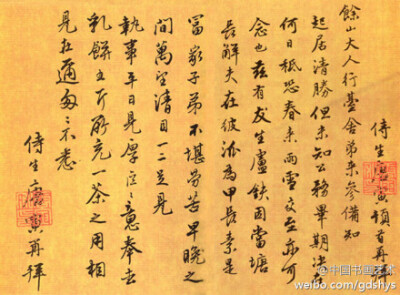 侍生唐寅頓首再拜
餘山大人行臺舍弟來參備知
起居清勝但未知公務畢期決在
何日秪恐春來雨雪交至亦可
念也茲有友生盧鈇因當塘
長解夫在彼派為甲長素是
富家子弟不堪勞苦早晚之
間萬望清目一二足見
執事平日見厚之意奉去
乳餅五斤所充一茶之用相
見在邇匆匆不悉
侍生唐寅再拜
@中国书画艺术
weibo.com/gdshys